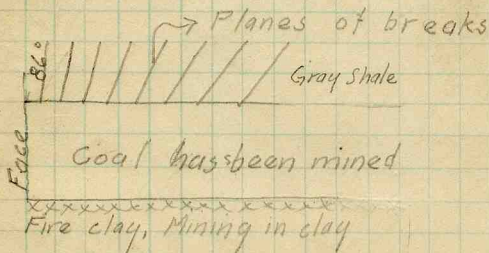 Planes of breaks
86°
Gray Shale
Face
Coal hasbeen mined
Fire clay, Mining in clay